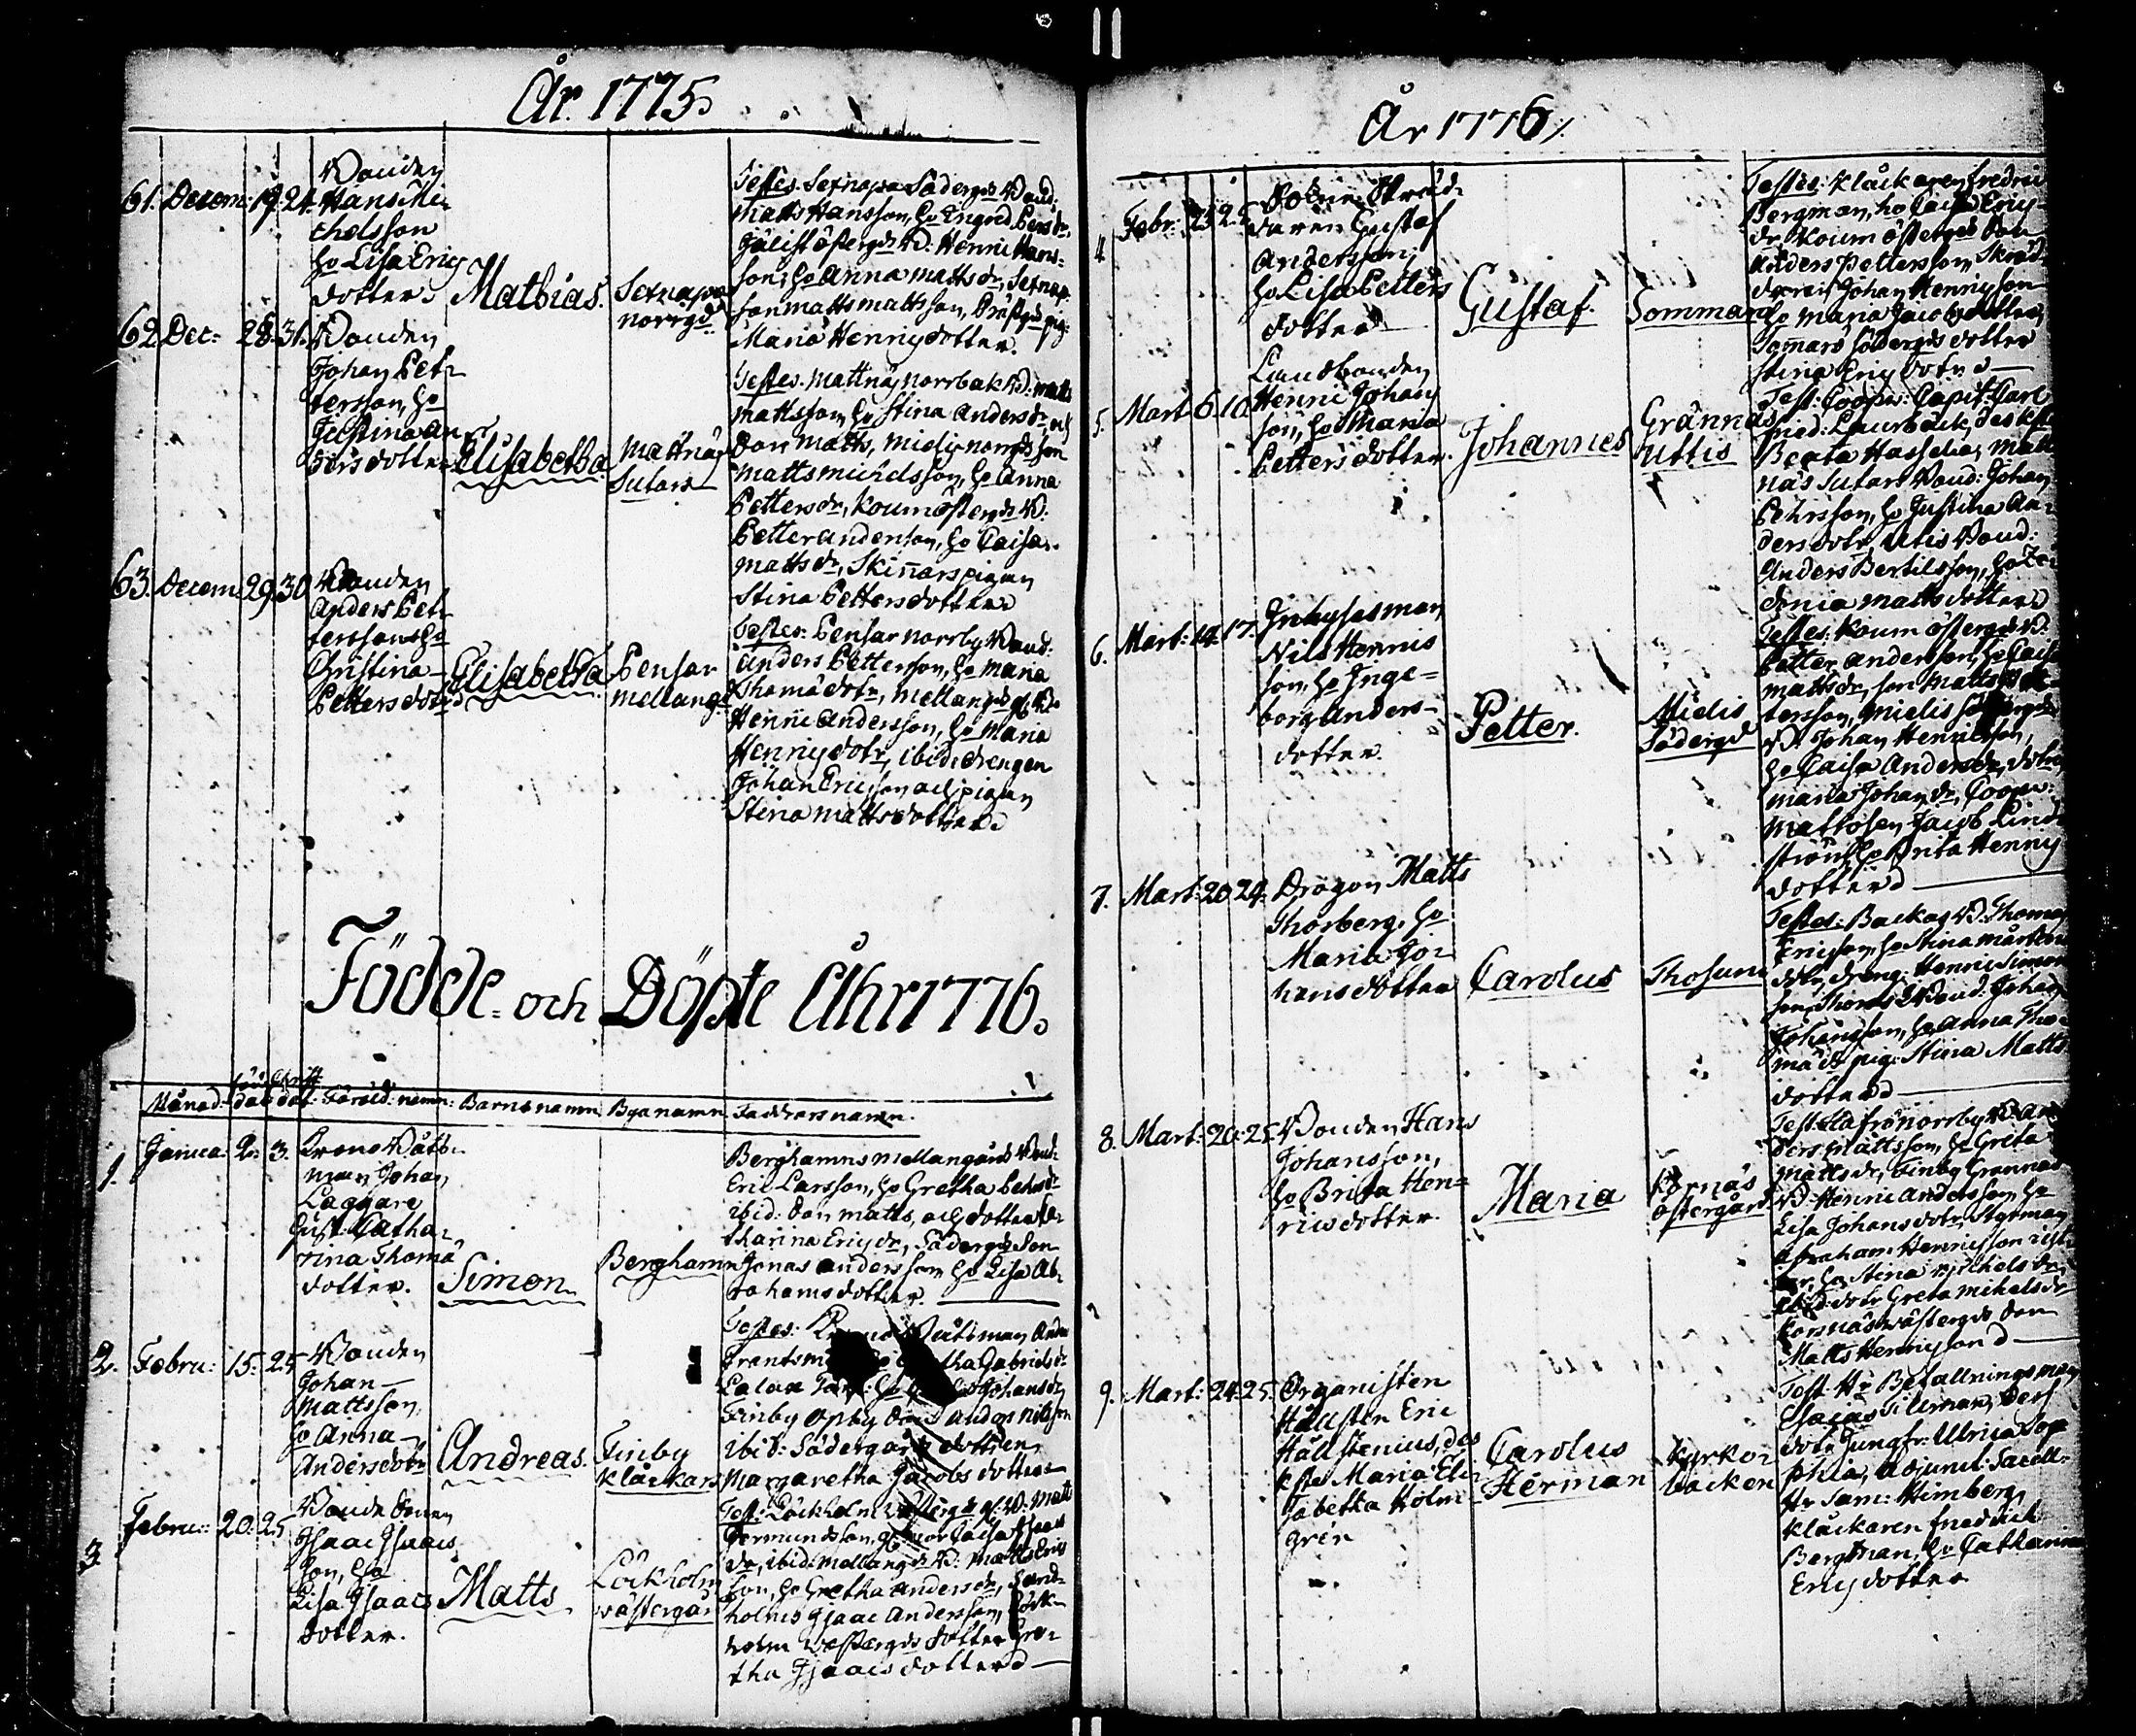 År 1775
61. Decem: 19. 24.
Bonden
Hans Mi-
chelsson
ho Lisa Erics
dotter.
Mathias.
norrgd
Matts Hansson, ho Ingred Persdr,
son, ho Anna Mattsdr,
son Matts Mattsson,
Maria Henricsdotter.
62. Dec: 28. 31.
Bonden
Johan Pet-
tersson, ho
Justina An-
dersdotter
Elisabetha
Mattnäs
Sutars
Testes. Mattnäs Norrback Bd: Matts
Mattsson, ho Stina Andersdr, och
Matts Michelsson, ho Anna
Pettersdr, Koum östergds B.
Petter Anderson, ho Caisa
Mattsdr, Skinnars pigan
Stina Pettersdotter
63. Decem. 29. 30.
Bonden
Anders Pet-
tersson ho
Christina
Pettersdotr
Elisabetha
Pensar
mellangd
Testes: Pensar norrby Bond:
Anders Petterson, ho Maria
Thomædotr, mellangds
Henric Andersson, ho Maria
Henricsdotr, ibid: drengen
Johan Ericsson och pigan
Stina Mattsdotter
Födde och Döpte Åhr 1776.
Månad: föd: dag Christ: dag: Föräld: namn: Barns namn Bya namn Faddrars namn.
1. Janua. 2. 3.
Krono Båts-
man Johan
Laggare
hust: Catha-
rina Thomæ
dotter.
Simon
Berghamn
Berghamns mellangårds Bond:
Eric Larsson, ho Gretha Pehrsdr
ibid: son Matts, och dotter Ca-
tharina Ericsdr, Södergds Son
Jonas Andersson ho Lisa Ab-
rahamsdotter.
2. Febru: 15. 25
Bonden
Johan
Mattsson,
ho Anna
Andersdotr
Andreas.
Finby
Klåckars
Testes: Båtsman
Gabrielsdr
Johansdr
Finby Opby Anders Nilsson
ibid: Södergårds dottren
Margaretha Jacobs dotter
3. Febru: 20. 25
Bonde Sonen
Isaac Isaacs
son, ho
Lisa Isaacs
dotter.
Matts
Löckholm
västergård
Test: Löckholm Västergds gl: B: Matts
Germundsson,
dr, ibid: mellangds Bd: Matts Erics
son, ho Gretha Andersdr, Sand-
holms Isaac Andersson, Löck-
holm västergds dotter Gre-
tha Isaacsdotter
År 1776
4. Febr: 25. 25.
Gustaf
Andersson,
ho Lisa Petters
dotter
Gustaf.
Sommars
Testes: Klåckaren Fredric
Bergman, ho Caisa Erics-
dr, Koum östergds Son
Anders Pettersson, Skräd-
daren Johan Henricsson
ho Maria Jacobsdotter,
Somars Södergds dotter
Stina Ericsdotr
5. Mart. 6. 10.
Landbonden
Henric Johans
son, ho Maria
Pettersdotter.
Johannes
Grännäs
Uttis
Test: Coopv: Capit: Carl
Fried: Laurbäck, des kste
Beata Hasselia, Matt-
näs Sutars Bond: Johan
Pehrsson, ho Justina An-
dersdotr Utis Bond:
Anders Bertilsson, ho
Mattsdotter
6. Mart: 14. 17.
Inhyses man
Nils Henrics
son, ho Inge-
borg Anders-
dotter.
Petter.
Mielis
Södergd
Testes: Koum östergds B.
Petter Andersson, ho Caisa
Mattsdr, son Matts Pet-
tersson, Mielis södergds
B: Johan Henricsson,
ho Caisa Andersdr, dotr
Maria Johansdr, Coopv:
Matrosen Jacob Lind-
ström, ho Brita Henrics
dotter
7. Mart: 20. 24.
Dragon Matts
Thorberg, ho
Maria Jo-
hansdotter
Carolus
Testes: Backas B. Thomas
Ericsson, ho Stina Mårtens
dotr, dreng: Henric Simons
son, Bond: Johan
Johansson, ho Anna Tho-
mædr pig: Stina Matts
dotter
8. Mart: 20. 25.
Bonden Hans
Johansson,
ho Brita Hen-
ricsdotter.
Maria
Kornäs
östergård
norrby B: An-
ders Mattsson, ho Greta
Mattsdr, Finby Grannas
Bd: Henric Andersson, ho
Lisa Johansdotr, Styrman
Abraham Henricsson
ho Stina Michelsdr,
ibid: dotr Greta Mikelsdr
Kornäs västergds Son
Matts Henricsson
9. Mart: 24. 25.
Organisten
Hällsten Eric
Hällstenius, des
kste Maria Eli-
sabetha Holm-
gren
Carolus
Herman
Kyrko-
backen
Test: Hr Befallningsman
Esaias Tileman, dess
dotr Jungfr: Ulrica Sop-
phia, Adjunct: Sacell:
Hr Sam: Himberg,
Klåckaren Fredrich
Bergman, ho Catharina
Ericsdotter